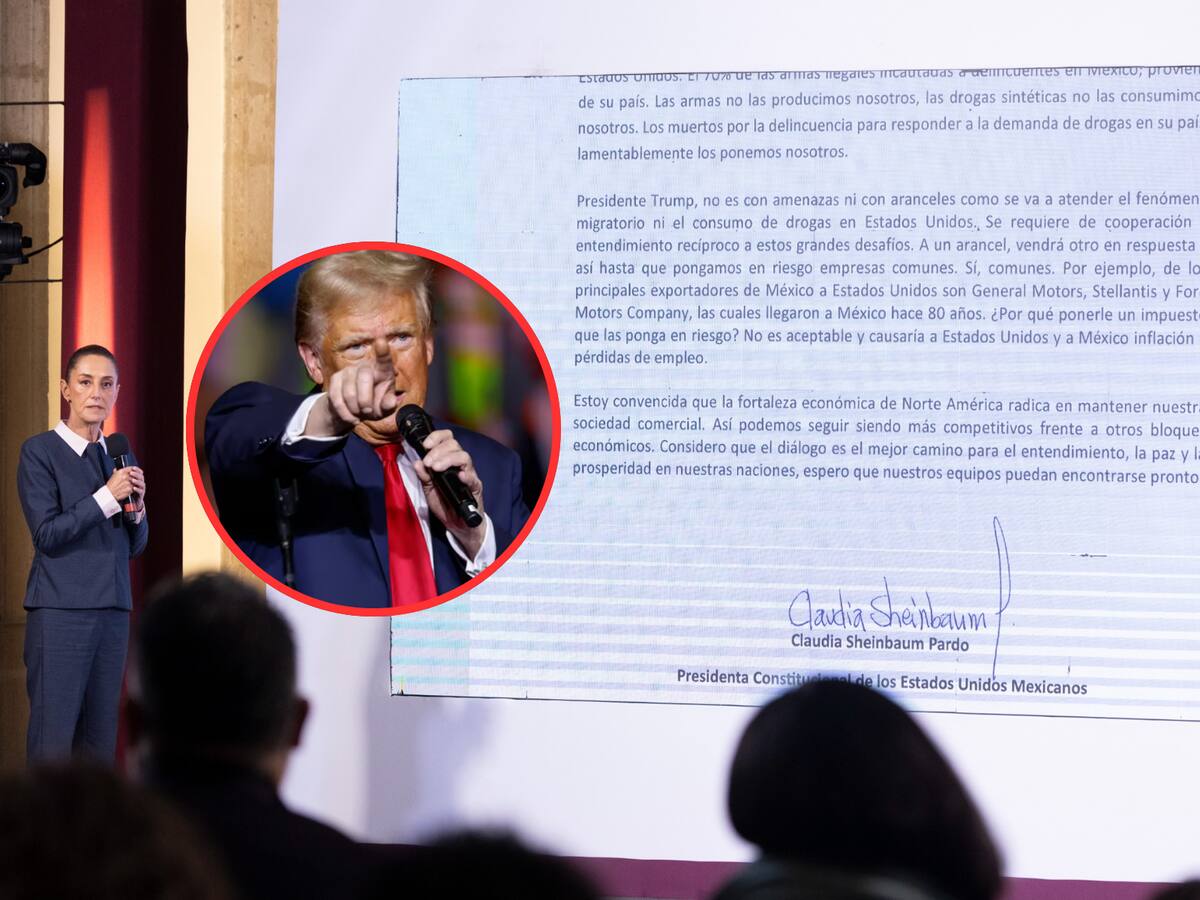 Estados Unidos. El 70% de las armas ilegales incautadas a delincuentes en México; provien
de su país. Las armas no las producimos nosotros, las drogas sintéticas no las consumimo
nosotros. Los muertos por la delincuencia para responder a la demanda de drogas en su paí
lamentablemente los ponemos nosotros.
Presidente Trump, no es con amenazas ni con aranceles como se va a atender el fenómen
migratorio ni el consumo de drogas en Estados Unidos. Se requiere de cooperación
entendimiento recíproco a estos grandes desafíos. A un arancel, vendrá otro en respuesta
así hasta que pongamos en riesgo empresas comunes. Sí, comunes. Por ejemplo, de lo
principales exportadores de México a Estados Unidos son General Motors, Stellantis y For
Motors Company, las cuales llegaron a México hace 80 años. ¿Por qué ponerle un impuesto
que las ponga en riesgo? No es aceptable y causaría a Estados Unidos y a México inflación
pérdidas de empleo.
Estoy convencida que la fortaleza económica de Norte América radica en mantener nuestra
sociedad comercial. Así podemos seguir siendo más competitivos frente a otros bloque
económicos. Considero que el diálogo es el mejor camino para el entendimiento, la paz y la
prosperidad en nuestras naciones, espero que nuestros equipos puedan encontrarse pronto
Claudia Sheinbaum
Claudia Sheinbaum Pardo
Presidenta Constitucional de los Estados Unidos Mexicanos